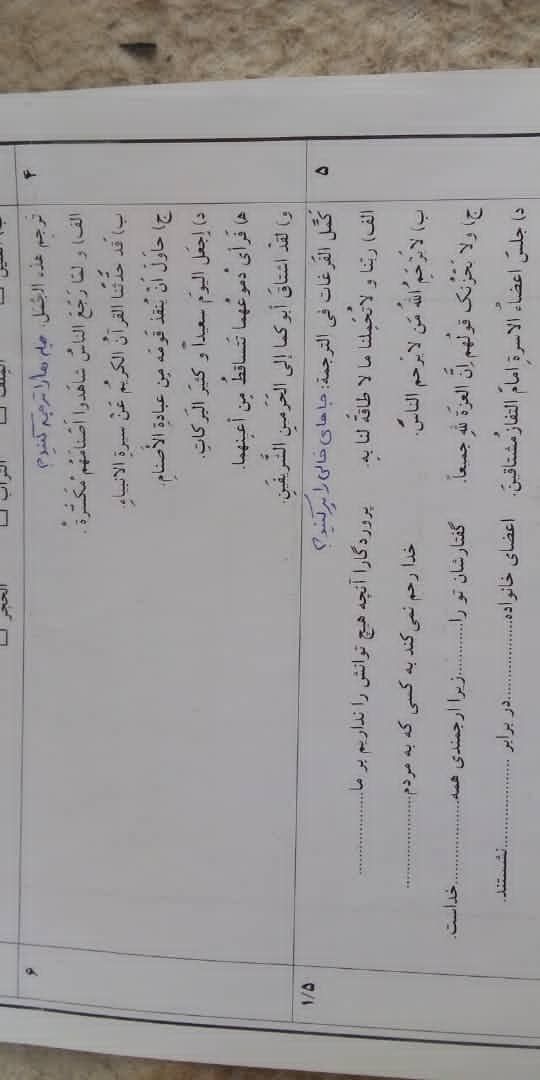 الحجر □ التراب □ □
۴
ترجم هذه الجمل. جمله ها را ترجمه کنید؟
۶
الف) و لمّا رَجَعَ الناسُ شاهَدوا أصنامَهُم مُکَسَّرَةً.
ب) قَد حَدَّثَنا القرآنُ الکریمُ عَنْ سیرةِ الانبیاءِ.
ج) حاوَلَ أنْ یُنقِذَ قَومَه مِن عِبادةِ الأصنامِ.
د) إجعَل الیومَ سعیداً و کثیرَ البَرَکاتِ.
ه) فَرأی دُموعَهُما تَتَساقَطُ مِن أعیُنِهِما.
و) لَقَد اشتاقَ أبوکما إلی الحَرَمینِ الشَّریفَینِ.
۵
کَمِّل الفَرغات فی الترجمة: جاهای خالی را پر کنید؟
۱/۵
الف) ربّنا و لا تُحَمِّلنا ما لا طاقَةَ لنا بِهِ. پروردگارا آنچه هیچ توانش را نداریم بر ما...............
ب) لا یَرحَمُ اللهُ مَن لا یَرحم الناسَ. خدا رحم نمی کند به کسی که به مردم...............
ج) ولا یَحْزُنکَ قولُهُم إنَّ العِزَةَ للهِ جمیعاً. گفتارشان تو را...........زیرا ارجمندی همه...............خداست.
د) جلسَ اعضاءُ الاسرةِ امامَ التلفازِ مُشتاقینَ. اعضای خانواده...............در برابر ...............نشستند.